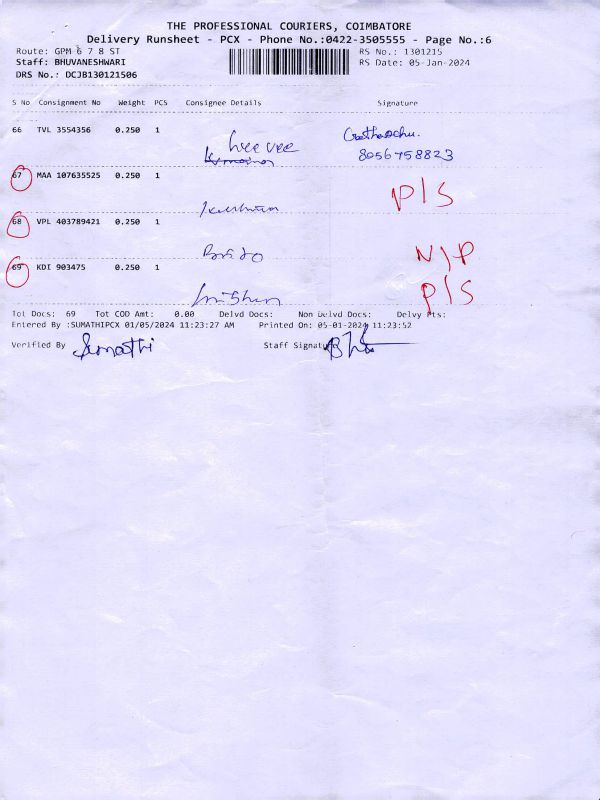 THE PROFESSIONAL COURIERS, COIMBATORE
Delivery Runsheet - PCX - Phone No.:0422-3505555 - Page No.:6
Route: GPM 6 7 8 ST
RS No.: 1301215
Staff: BHUVANESHWARI
RS Date: 05-Jan-2024
DRS No.: DCJB130121506
S No Consignment No Weight PCS Consignee Details Signature
66 TVL 3554356 0.250 1
8056758823
67 MAA 107635525 0.250 1
P/S
68 VPL 403789421 0.250 1
N/P
69 KDI 903475 0.250 1
P/S
Tot Docs: 69 Tot COD Amt: 0.00 Delvd Docs: Non Delvd Docs: Delvy Pts:
Entered By :SUMATHIPCX 01/05/2024 11:23:27 AM Printed On: 05-01-2024 11:23:52
Verified By Sumathi Staff Signature